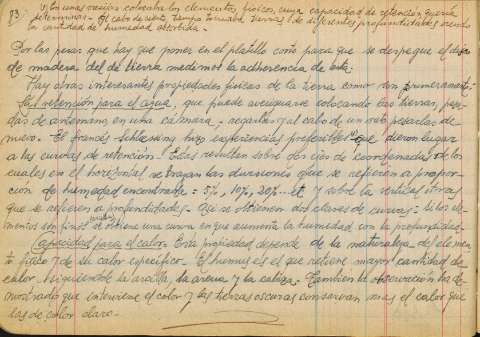 83.
determinar. Al cabo de cierto tiempo tomaba tierras de diferentes profundidades viendo
la cantidad de humedad absorbida.
Por las pesas que hay que poner en el platillo corto para que se despegue el disco
de madera del de tierra medimos la adherencia de esta.
Hay otras interesantes propiedades físicas de la tierra como son primeramente:
La retención para el agua, que puede averiguarse colocando las tierras, pesa-
das de antemano, en una cámara, regarlas y al cabo de un rato pesarlas de
nuevo. El francés Schloesing hizo experiencias preferibles que dieron lugar
a las curvas de retención. Estas resultan sobre dos ejes de coordenadas de los
cuales en el horizontal se trazan las divisiones que se refieren a propor-
ción de humedad encontrada = 5%, 10%, 20%... et y sobre la vertical otras
que se refieren a profundidades. Así se obtienen dos clases de curvas: si los ele-
mentos son finos se obtiene una curva en que aumenta la humedad con la profundidad.
Capacidad para el calor. Esta propiedad depende de la naturaleza del elemen-
to físico y de su calor específico. El humus es el que retiene mayor cantidad de
calor, siguiéndole la arcilla, la arena y la caliza. También la observación ha de-
mostrado que interviene el color y las tierras oscuras conservan más el calor que
las de color claro.